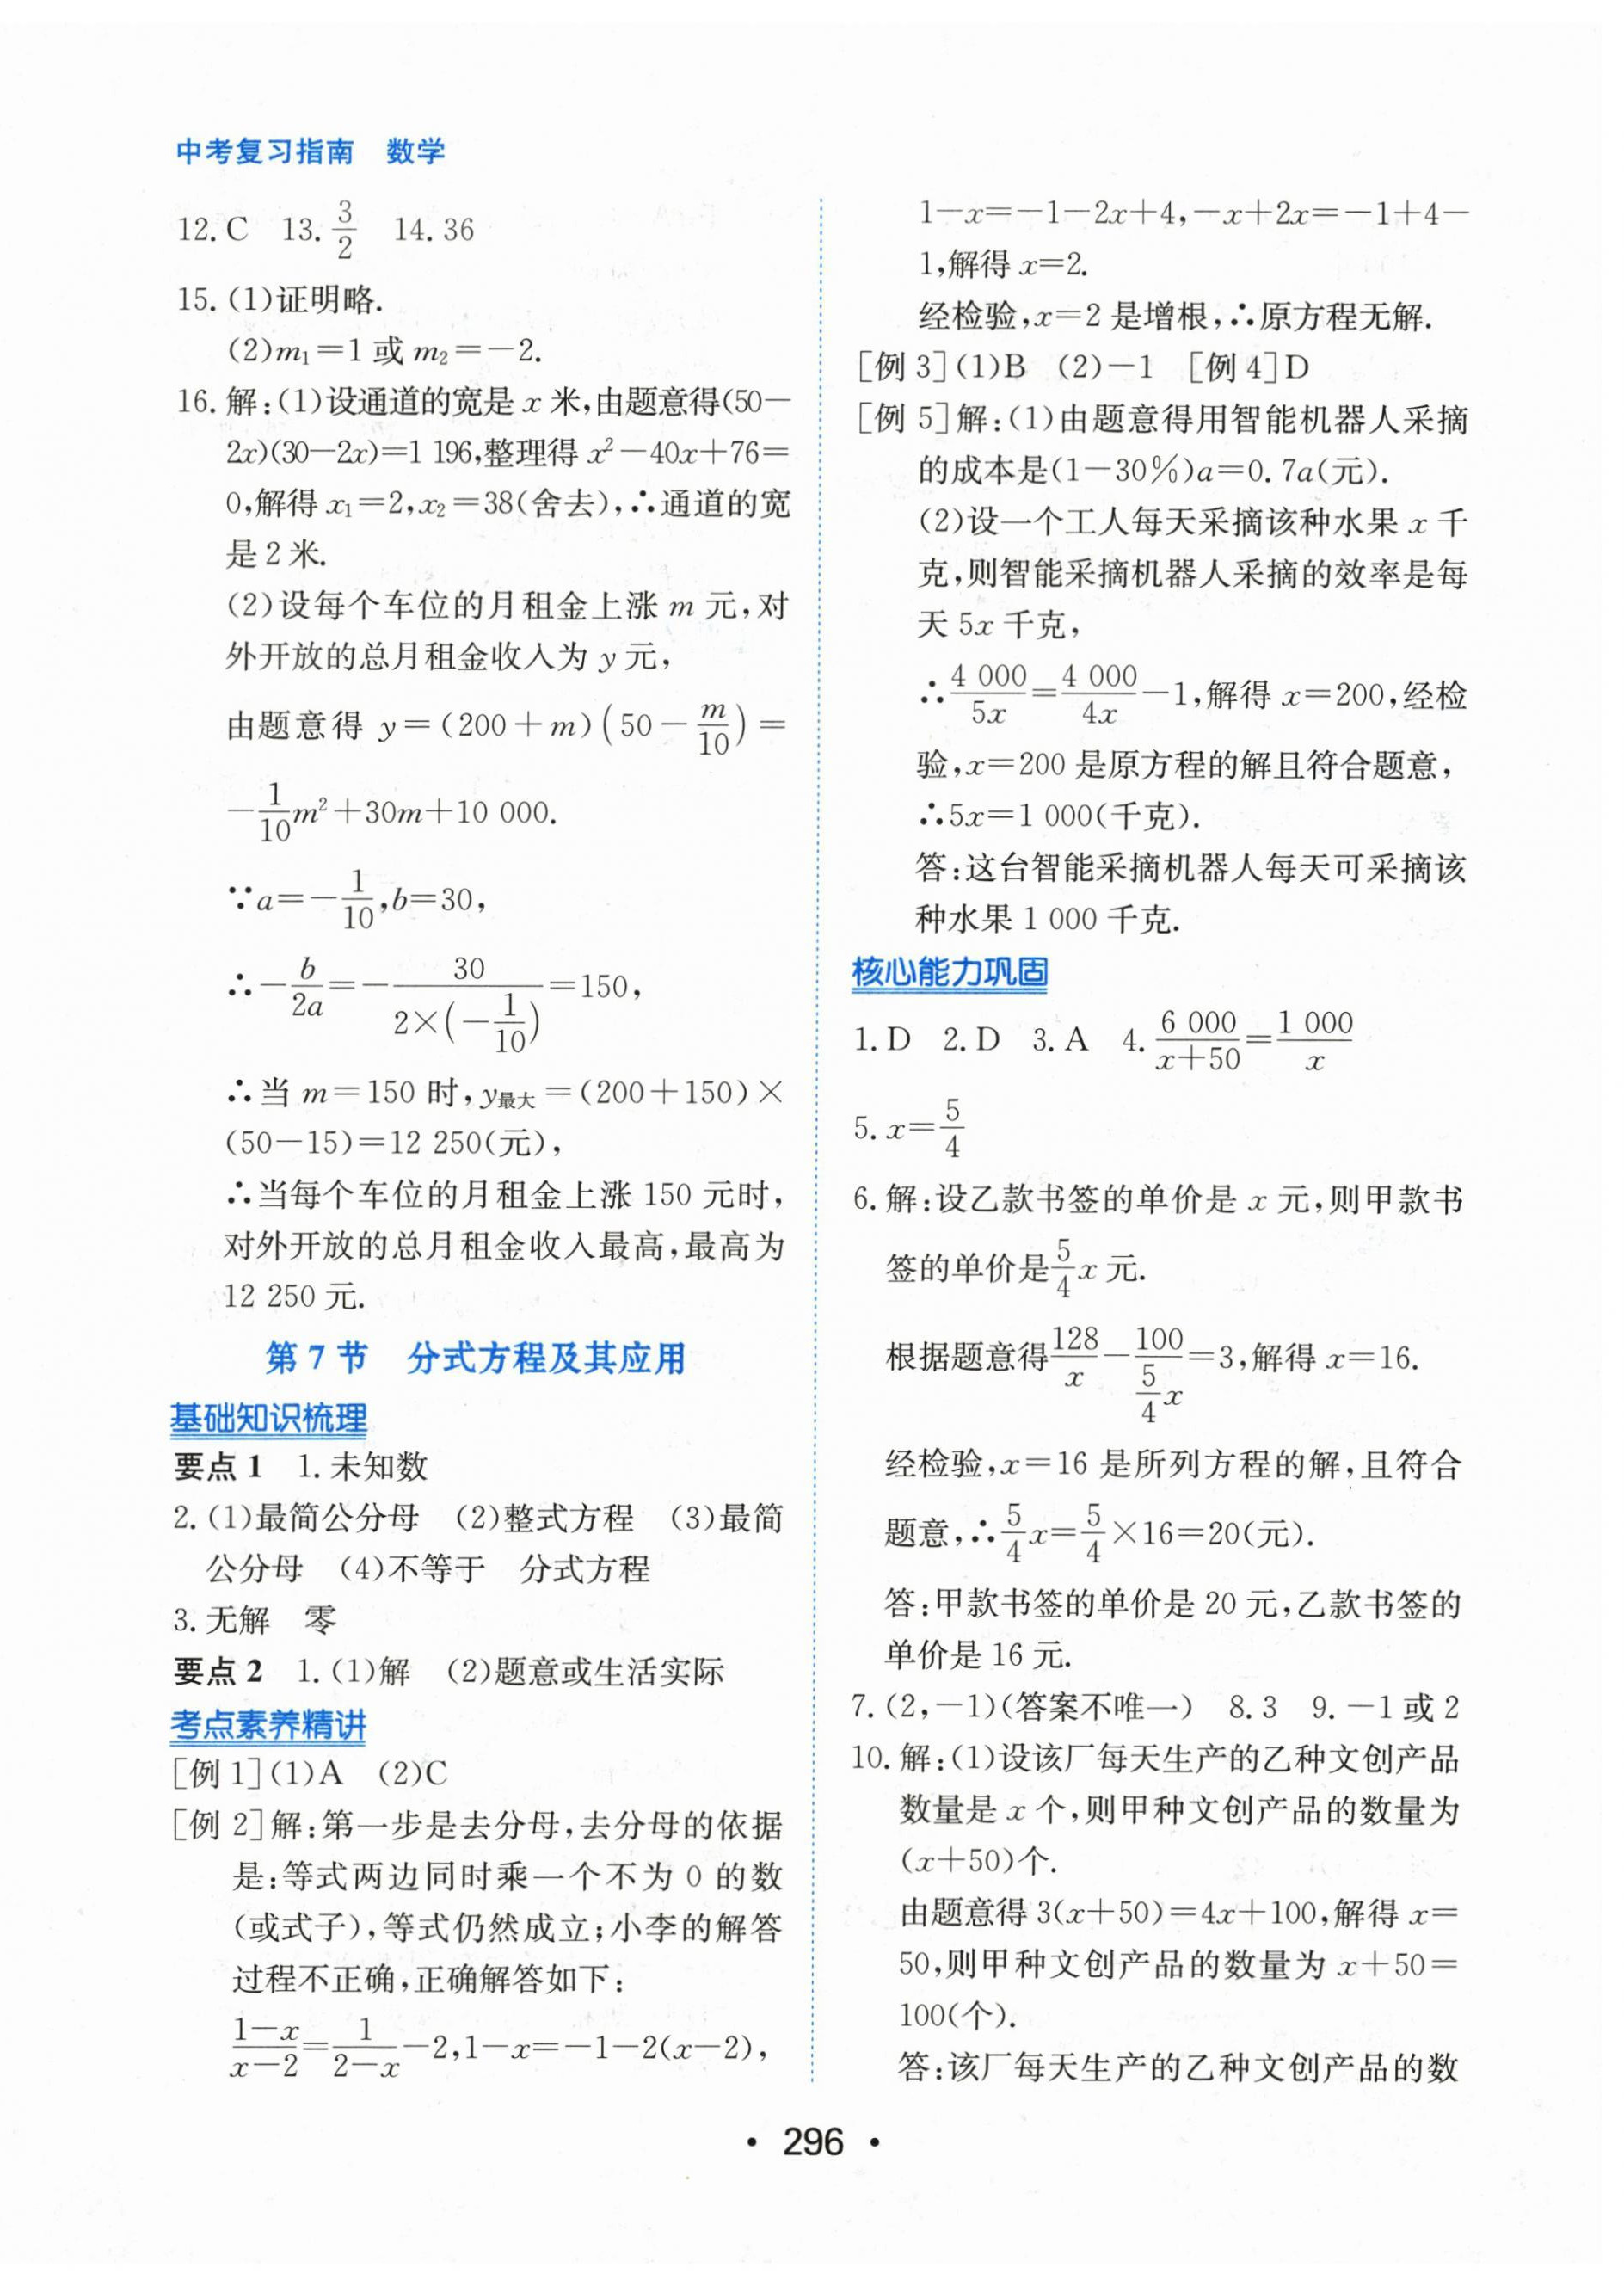 中考复习指南 数学
12. C 13. 3/2 14. 36
15. (1)证明略.
(2)m₁=1 或 m₂=-2.
16. 解:(1)设通道的宽是 x 米,由题意得(50-
2x)(30-2x)=1 196,整理得 x²-40x+76=
0,解得 x₁=2,x₂=38(舍去),∴通道的宽
是 2 米.
(2)设每个车位的月租金上涨 m 元,对
外开放的总月租金收入为 y 元,
由题意得 y=(200+m)(50-m/10)=
-1/10m²+30m+10 000.
∵a=-1/10,b=30,
∴-b/2a=-30/(2×(-1/10))=150,
∴当 m=150 时,y最大=(200+150)×
(50-15)=12 250(元),
∴当每个车位的月租金上涨 150 元时,
对外开放的总月租金收入最高,最高为
12 250 元.
第 7 节 分式方程及其应用
基础知识梳理
要点 1 1. 未知数
2. (1)最简公分母 (2)整式方程 (3)最简
公分母 (4)不等于 分式方程
3. 无解 零
要点 2 1. (1)解 (2)题意或生活实际
考点素养精讲
[例 1](1)A (2)C
[例 2]解:第一步是去分母,去分母的依据
是:等式两边同时乘一个不为 0 的数
(或式子),等式仍然成立;小李的解答
过程不正确,正确解答如下:
(1-x)/(x-2)=1/(2-x)-2,1-x=-1-2(x-2),
1-x=-1-2x+4,-x+2x=-1+4-
1,解得 x=2.
经检验,x=2 是增根,∴原方程无解.
[例 3](1)B (2)-1 [例 4]D
[例 5]解:(1)由题意得用智能机器人采摘
的成本是(1-30%)a=0.7a(元).
(2)设一个工人每天采摘该种水果 x 千
克,则智能采摘机器人采摘的效率是每
天 5x 千克,
∴4 000/5x=4 000/4x-1,解得 x=200,经检
验,x=200 是原方程的解且符合题意,
∴5x=1 000(千克).
答:这台智能采摘机器人每天可采摘该
种水果 1 000 千克.
核心能力巩固
1. D 2. D 3. A 4. 6 000/(x+50)=1 000/x
5. x=5/4
6. 解:设乙款书签的单价是 x 元,则甲款书
签的单价是5/4x 元.
根据题意得128/x-100/(5/4x)=3,解得 x=16.
经检验,x=16 是所列方程的解,且符合
题意,∴5/4x=5/4×16=20(元).
答:甲款书签的单价是 20 元,乙款书签的
单价是 16 元.
7. (2,-1)(答案不唯一) 8. 3 9. -1 或 2
10. 解:(1)设该厂每天生产的乙种文创产品
数量是 x 个,则甲种文创产品的数量为
(x+50)个.
由题意得 3(x+50)=4x+100,解得 x=
50,则甲种文创产品的数量为 x+50=
100(个).
答:该厂每天生产的乙种文创产品的数
· 296 ·